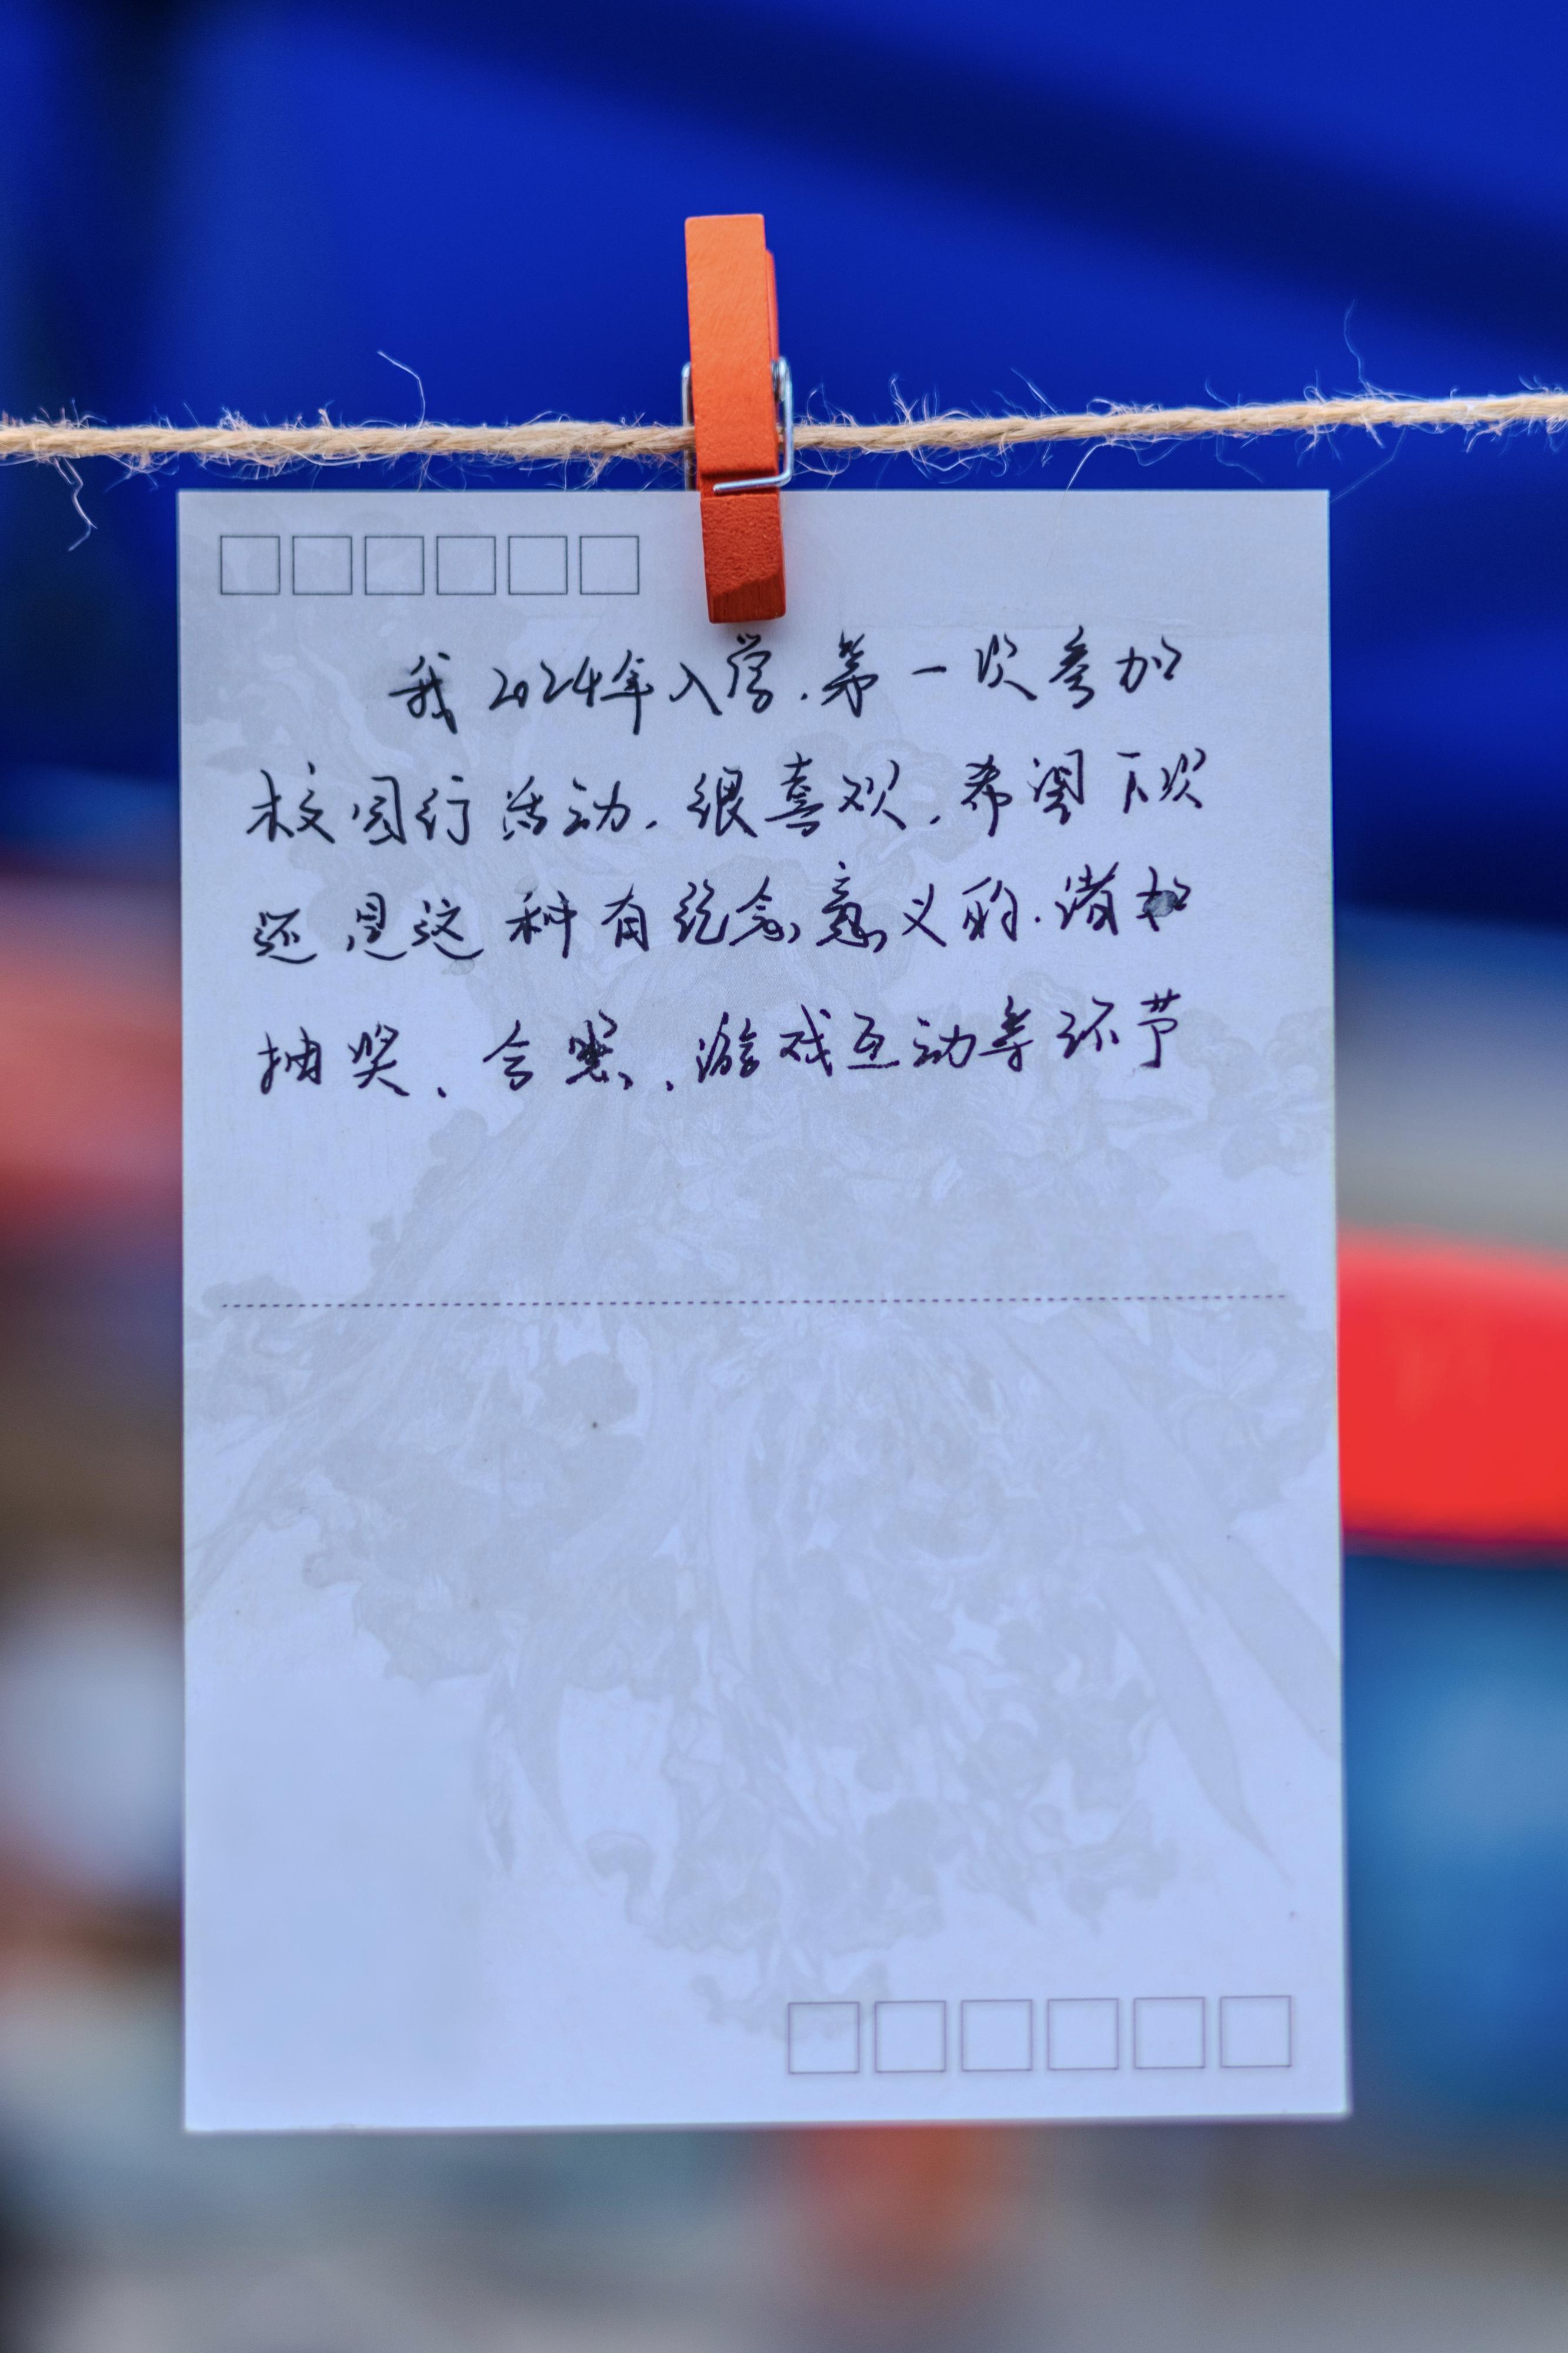 我2024年入学.第一次参加
校园行活动.很喜欢.希望下次
还是这种有纪念意义的.增加
抽奖、合照、游戏互动等环节